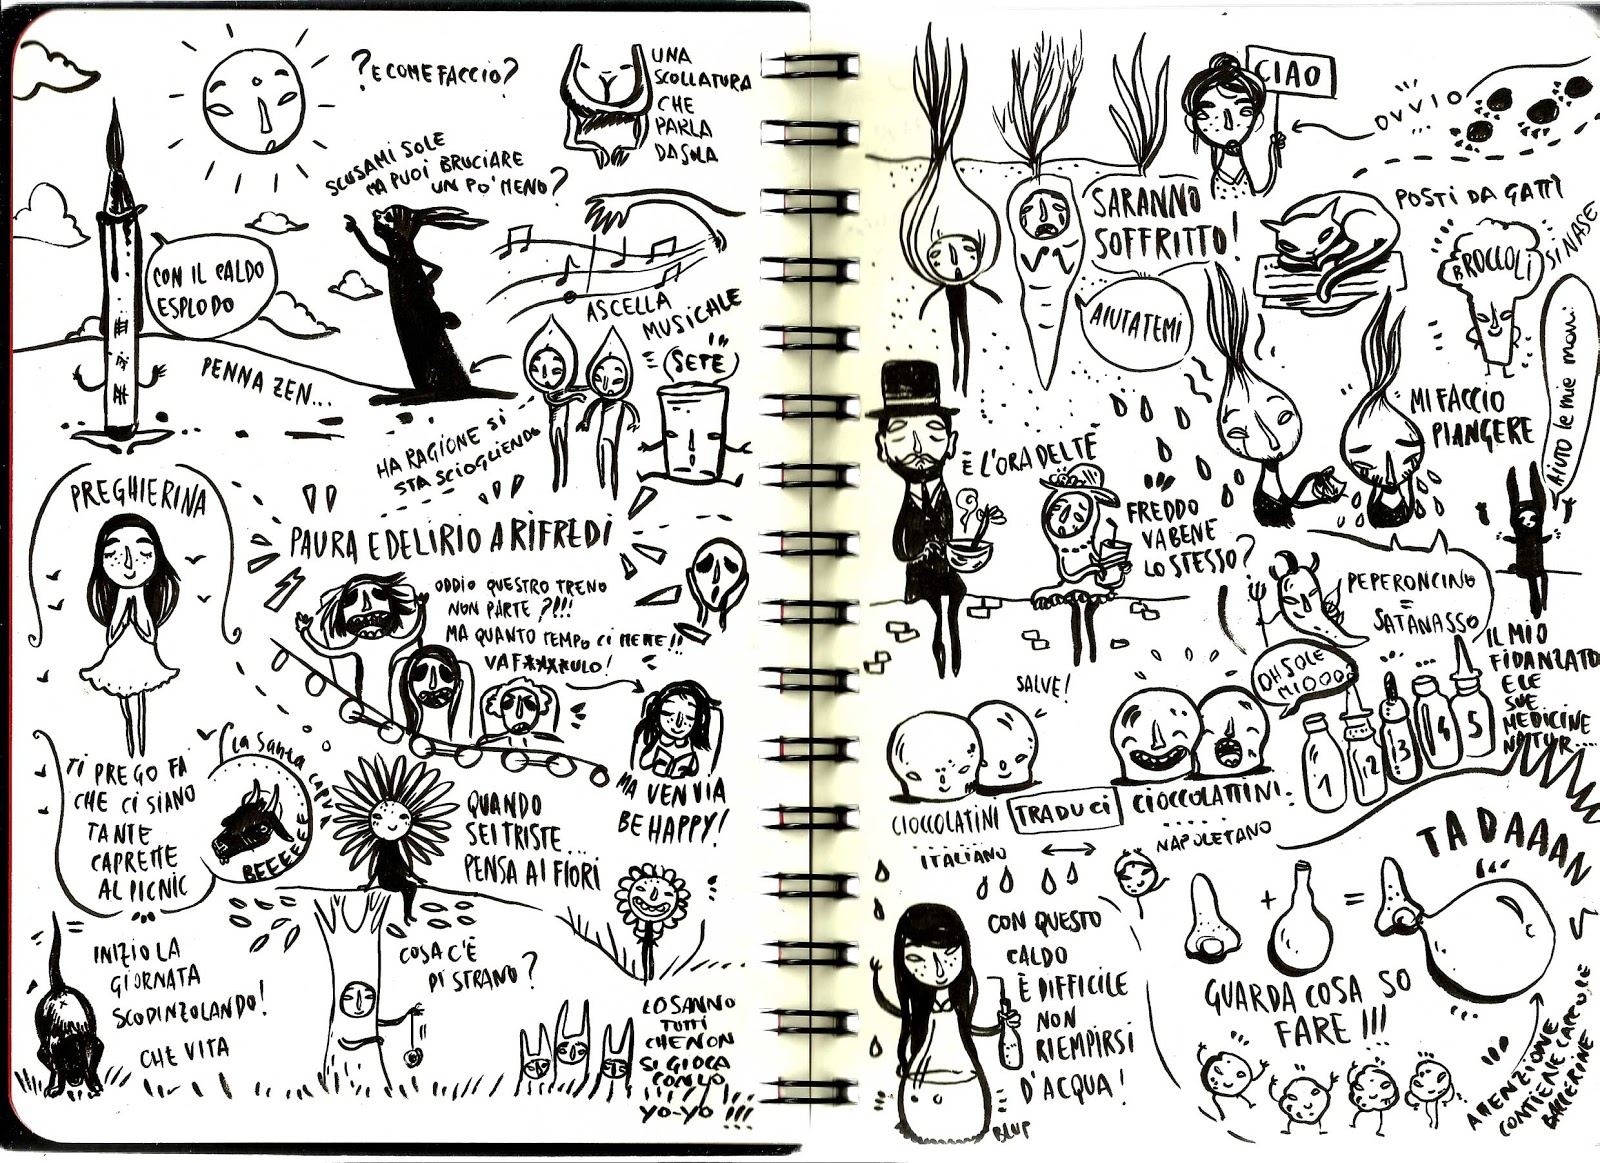 ? E COME FACCIO?
UNA
SCOLLATURA
CHE
PARLA
DA SOLA
SCUSAMI SOLE
MA PUOI BRUCIARE
UN PO' MENO?
CON IL CALDO
ESPLODO
PENNA ZEN...
ASCELLA
MUSICALE
SETE
HA RAGIONE SI
STA SCIOGLIENDO
PREGHIERINA
TI PREGO FA
CHE CI SIANO
TANTE
CAPRETTE
AL PICNIC
LA SANTA CAPV
BEEEEE
PAURA E DELIRIO A RIFREDI
ODDIO QUESTRO TRENO
NON PARTE?!!!
MA QUANTO TEMPO CI METTE!!
VAF****ULO!
MA VEN VIA
BE HAPPY!
QUANDO
SEI TRISTE...
PENSA AI FIORI
INIZIO LA
GIORNATA
SCODINZOLANDO!
CHE VITA
COSA C'È
DI STRANO?
LO SANNO
TUTTI
CHE NON
SI GIOCA
CON LO
YO-YO!!!
CIAO
OVVIO
SARANNO
SOFFRITTO!
AIUTATEMI
POSTI DA GATTI
BROCCOLI
SI NASE
MI FACCIO
PIANGERE
AIUTO le mie mani
È L'ORA DEL TÈ
FREDDO
VA BENE
LO STESSO?
PEPERONCINO
=
SATANASSO
SALVE!
OH SOLE
MIOOOO
IL MIO
FIDANZATO
E LE
SUE
MEDICINE
NATUR....
1 2 3 4 5
CIOCCOLATINI TRADUCI CIOCCOLATTINI.
ITALIANO NAPOLETANO
CON QUESTO
CALDO
È DIFFICILE
NON
RIEMPIRSI
D'ACQUA!
BLUP
TADAAAN
+ =
GUARDA COSA SO
FARE!!!
ATTENZIONE
CONTIENE CAPRIOLE
BALLERINE